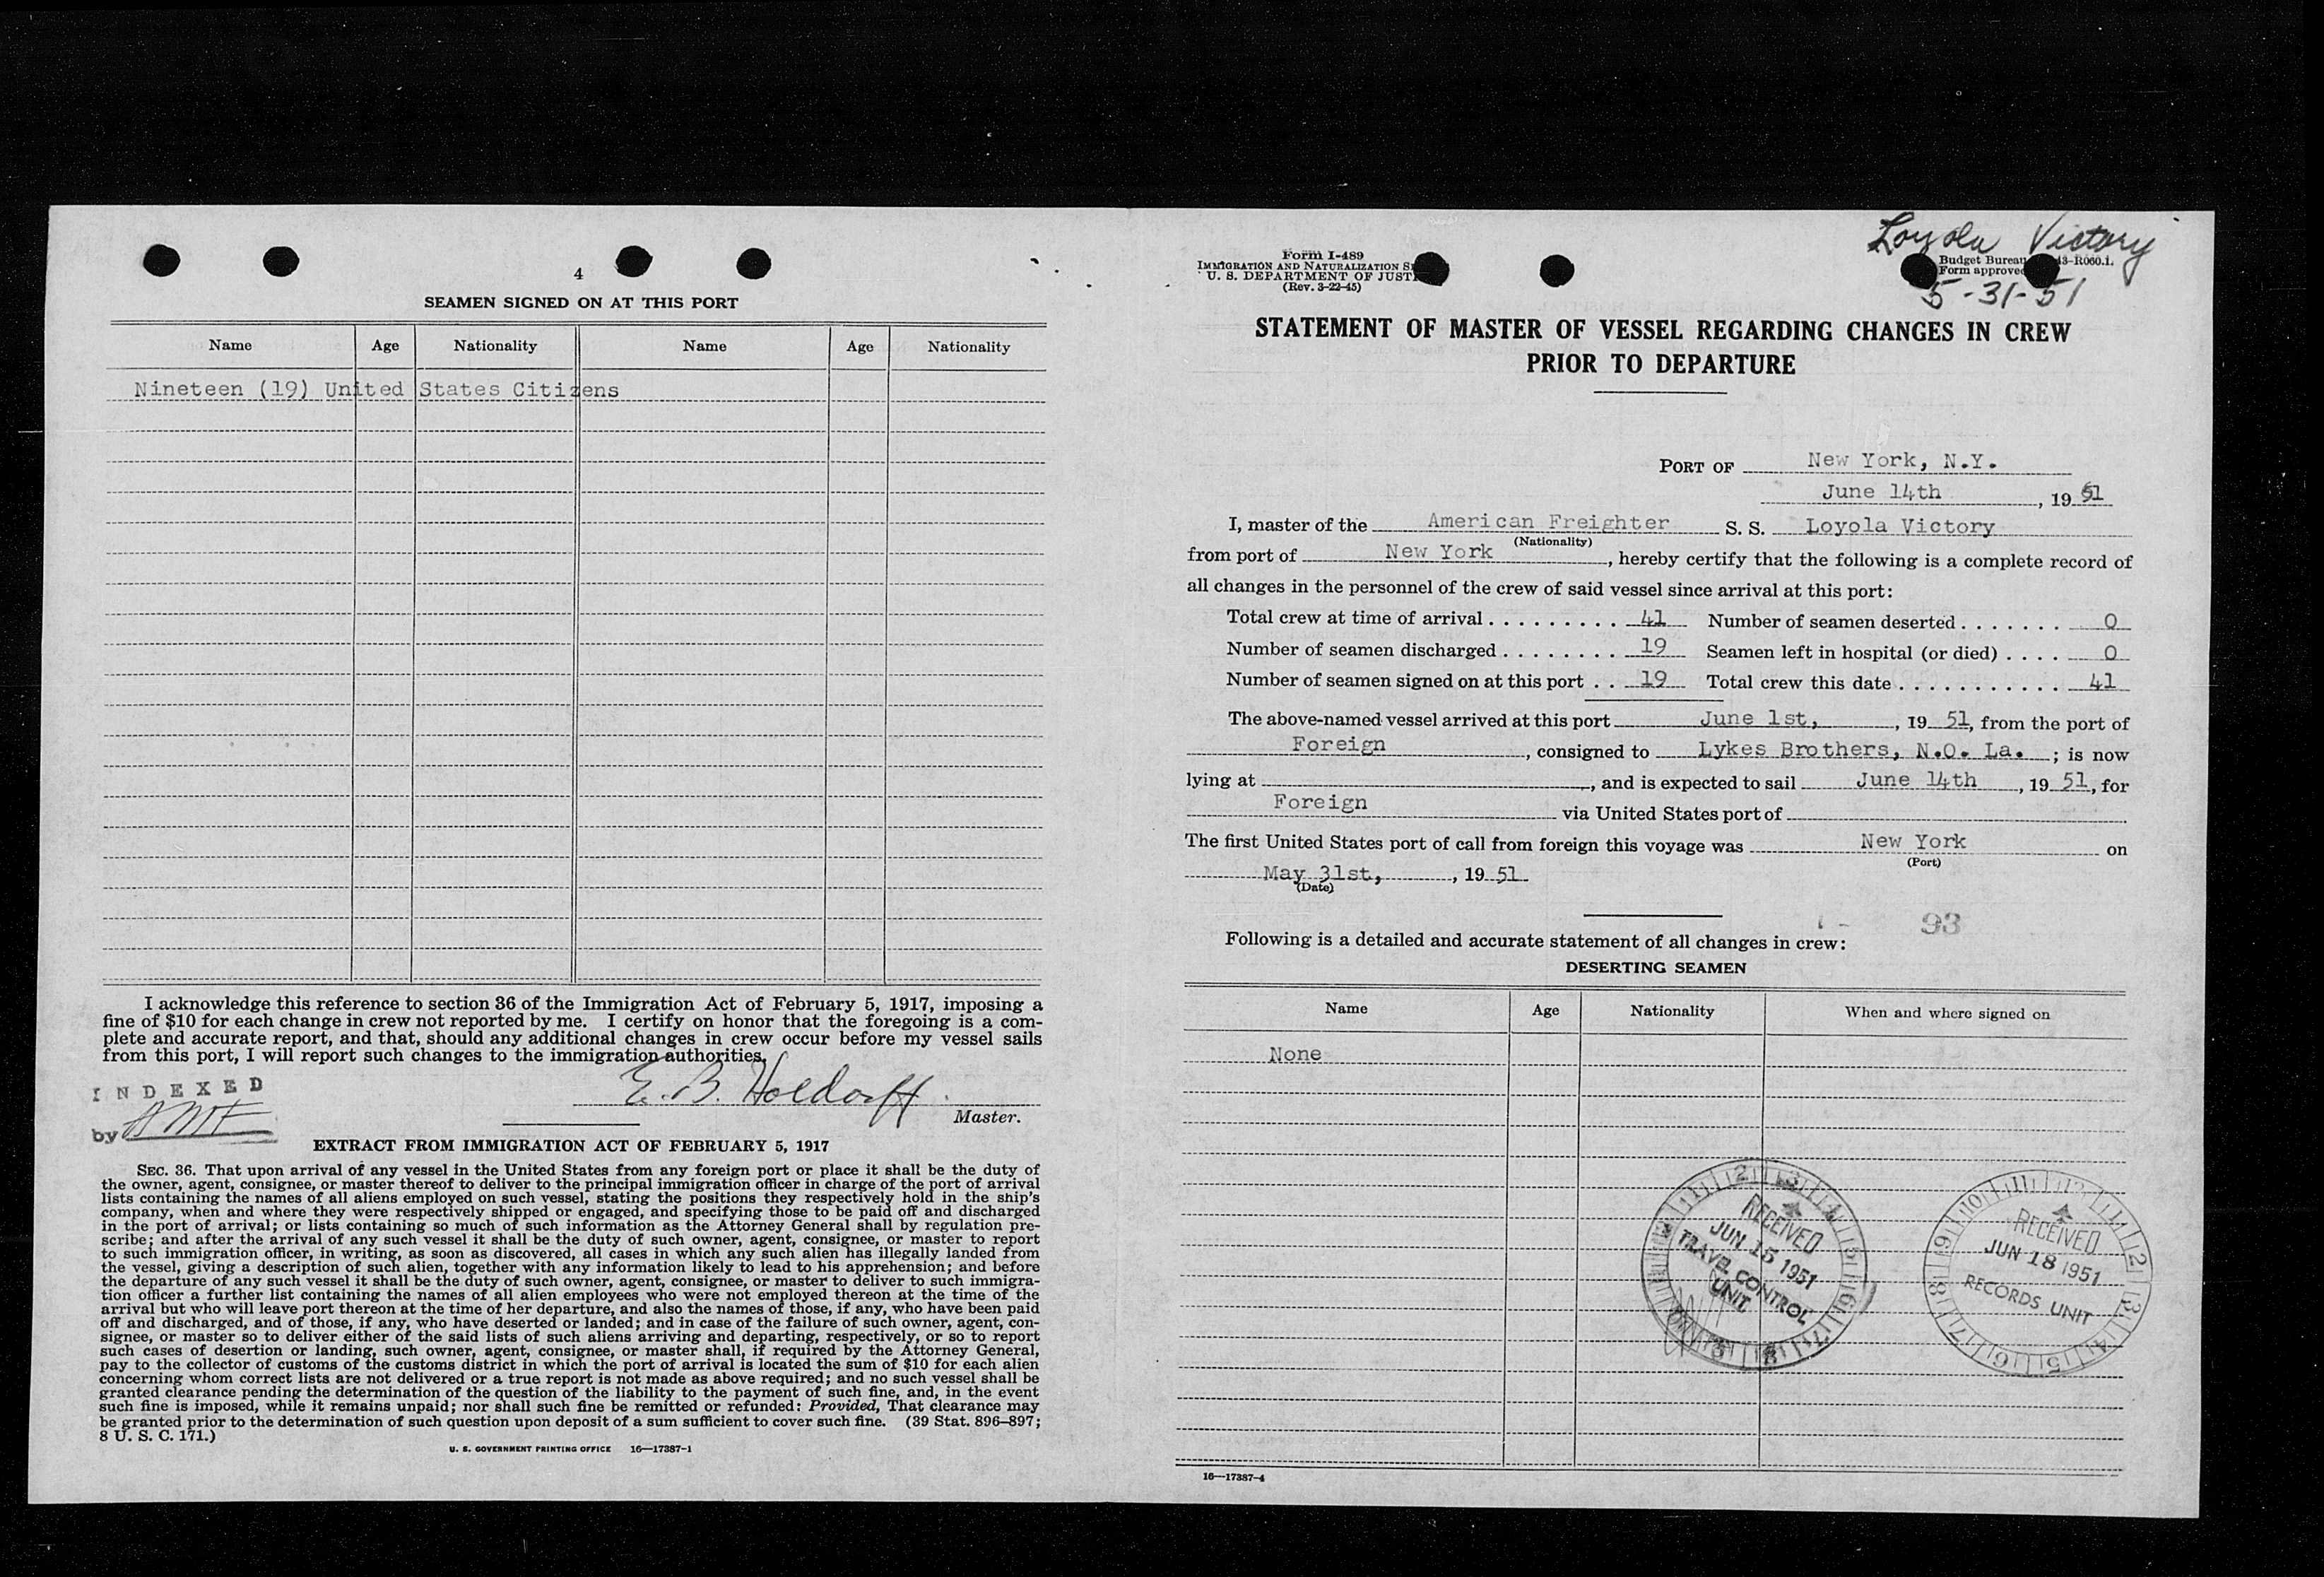 4
SEAMEN SIGNED ON AT THIS PORT
Name Age Nationality Name Age Nationality
Nineteen (19) United States Citizens
I acknowledge this reference to section 36 of the Immigration Act of February 5, 1917, imposing a
fine of $10 for each change in crew not reported by me. I certify on honor that the foregoing is a com-
plete and accurate report, and that, should any additional changes in crew occur before my vessel sails
from this port, I will report such changes to the immigration authorities.
INDEXED
E. B. Holdorff
Master.
by
EXTRACT FROM IMMIGRATION ACT OF FEBRUARY 5, 1917
SEC. 36. That upon arrival of any vessel in the United States from any foreign port or place it shall be the duty of
the owner, agent, consignee, or master thereof to deliver to the principal immigration officer in charge of the port of arrival
lists containing the names of all aliens employed on such vessel, stating the positions they respectively hold in the ship's
company, when and where they were respectively shipped or engaged, and specifying those to be paid off and discharged
in the port of arrival; or lists containing so much of such information as the Attorney General shall by regulation pre-
scribe; and after the arrival of any such vessel it shall be the duty of such owner, agent, consignee, or master to report
to such immigration officer, in writing, as soon as discovered, all cases in which any such alien has illegally landed from
the vessel, giving a description of such alien, together with any information likely to lead to his apprehension; and before
the departure of any such vessel it shall be the duty of such owner, agent, consignee, or master to deliver to such immigra-
tion officer a further list containing the names of all alien employees who were not employed thereon at the time of the
arrival but who will leave port thereon at the time of her departure, and also the names of those, if any, who have been paid
off and discharged, and of those, if any, who have deserted or landed; and in case of the failure of such owner, agent, con-
signee, or master so to deliver either of the said lists of such aliens arriving and departing, respectively, or so to report
such cases of desertion or landing, such owner, agent, consignee, or master shall, if required by the Attorney General,
pay to the collector of customs of the customs district in which the port of arrival is located the sum of $10 for each alien
concerning whom correct lists are not delivered or a true report is not made as above required; and no such vessel shall be
granted clearance pending the determination of the question of the liability to the payment of such fine, and, in the event
such fine is imposed, while it remains unpaid; nor shall such fine be remitted or refunded: Provided, That clearance may
be granted prior to the determination of such question upon deposit of a sum sufficient to cover such fine. (39 Stat. 896–897;
8 U. S. C. 171.)
U. S. GOVERNMENT PRINTING OFFICE 16—17387-1
Loyola Victory
Form I-489
IMMIGRATION AND NATURALIZATION S
U. S. DEPARTMENT OF JUST
(Rev. 3-22-45)
Budget Bureau 43-R060.1.
Form approved
5-31-51
STATEMENT OF MASTER OF VESSEL REGARDING CHANGES IN CREW
PRIOR TO DEPARTURE
PORT OF New York, N.Y.
June 14th, 19 51
I, master of the American Freighter S. S. Loyola Victory
(Nationality)
from port of New York, hereby certify that the following is a complete record of
all changes in the personnel of the crew of said vessel since arrival at this port:
Total crew at time of arrival . . . . . . . . . 41 Number of seamen deserted . . . . . . . 0
Number of seamen discharged . . . . . . . . 19 Seamen left in hospital (or died) . . . . 0
Number of seamen signed on at this port . . 19 Total crew this date . . . . . . . . . . . 41
The above-named vessel arrived at this port June 1st, , 19 51, from the port of
Foreign, consigned to Lykes Brothers, N.O. La. ; is now
lying at , and is expected to sail June 14th, 19 51, for
Foreign via United States port of
The first United States port of call from foreign this voyage was New York on
(Port)
May 31st, , 19 51
(Date)
93
Following is a detailed and accurate statement of all changes in crew:
DESERTING SEAMEN
Name Age Nationality When and where signed on
None
RECEIVED
JUN 15 1951
TRAVEL CONTROL
UNIT
RECEIVED
JUN 18 1951
RECORDS UNIT
16—17387-4